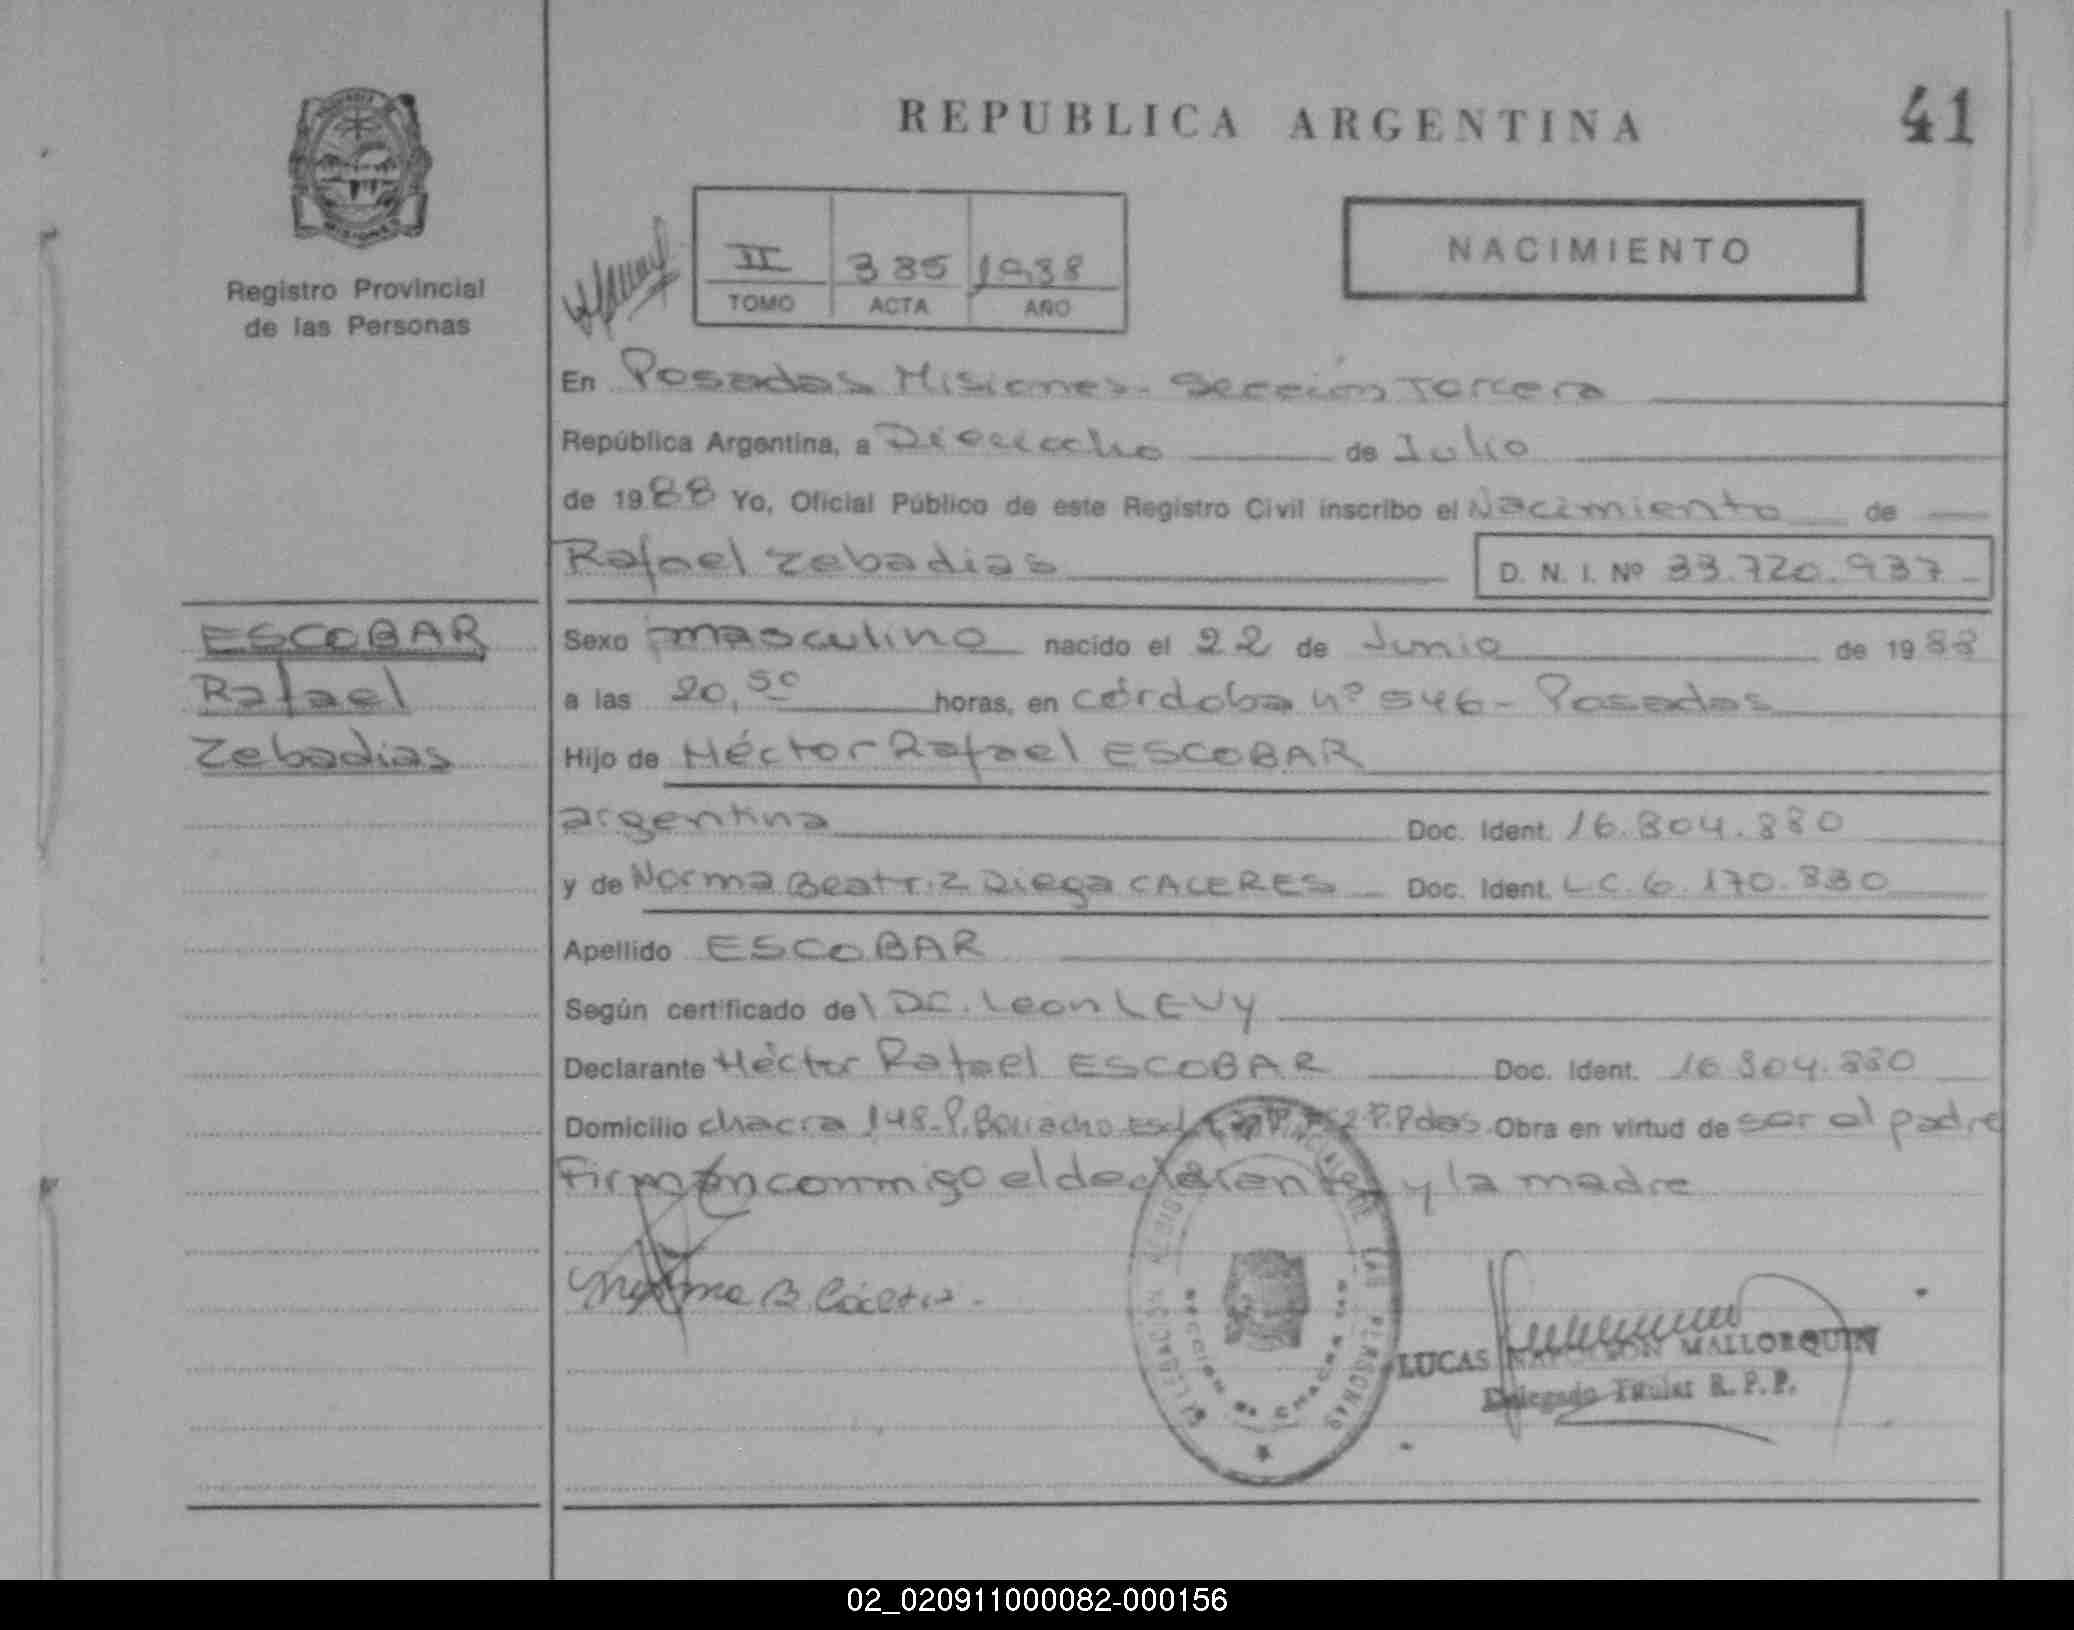 REPUBLICA ARGENTINA
41
Registro Provincial
de las Personas
II 385 1988
TOMO ACTA AÑO
NACIMIENTO
En Posadas Misiones - Sección Tercera
República Argentina, a Dieciocho de Julio
de 1988 Yo, Oficial Público de este Registro Civil inscribo el Nacimiento de
Rafael Zebadias
D. N. I. Nº 33.720.937
ESCOBAR
Rafael
Zebadias
Sexo masculino nacido el 22 de Junio de 1988
a las 20,50 horas, en Córdoba nº 546 - Posadas
Hijo de Héctor Rafael ESCOBAR
argentina Doc. Ident. 16.804.880
y de Norma Beatriz Diega CACERES Doc. Ident. L.C. 6.170.830
Apellido ESCOBAR
Según certificado del Dr. Leon LEVY
Declarante Héctor Rafael ESCOBAR Doc. Ident. 16.804.880
Domicilio chacra 148 - Pdas. Obra en virtud de ser el padre
Firman conmigo el declarante y la madre
Norma B. Cáceres.
DELEGACION REGISTRO PROVINCIAL DE LAS PERSONAS
SECCION 3a CHACRA
LUCAS NAPOLEON MALLORQUIN
Delegado Titular R. P. P.
02_020911000082-000156